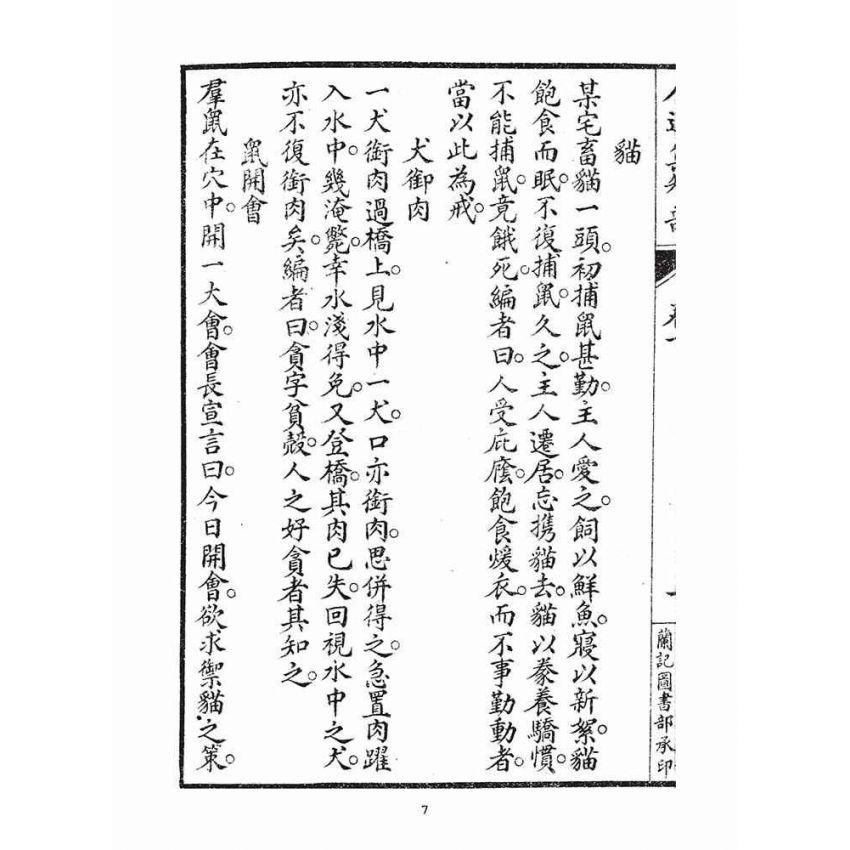 蘭記圖書部承印
貓
某宅畜貓一頭。初捕鼠甚勤。主人愛之。飼以鮮魚。寢以新絮。貓
飽食而眠。不復捕鼠。久之。主人遷居。忘携貓去。貓以豢養驕慣。
不能捕鼠。竟餓死。編者曰。人受庇廕。飽食煖衣。而不事勤動者。
當以此為戒。
犬御肉
一犬銜肉過橋上。見水中一犬。口亦銜肉。思併得之。急置肉躍
入水中。幾淹斃。幸水淺得免。又登橋。其肉已失。回視水中之犬。
亦不復銜肉矣。編者曰。貪字貧殼。人之好貪者其知之。
鼠開會
羣鼠在穴中。開一大會。會長宣言曰。今日開會。欲求禦貓之策。
7